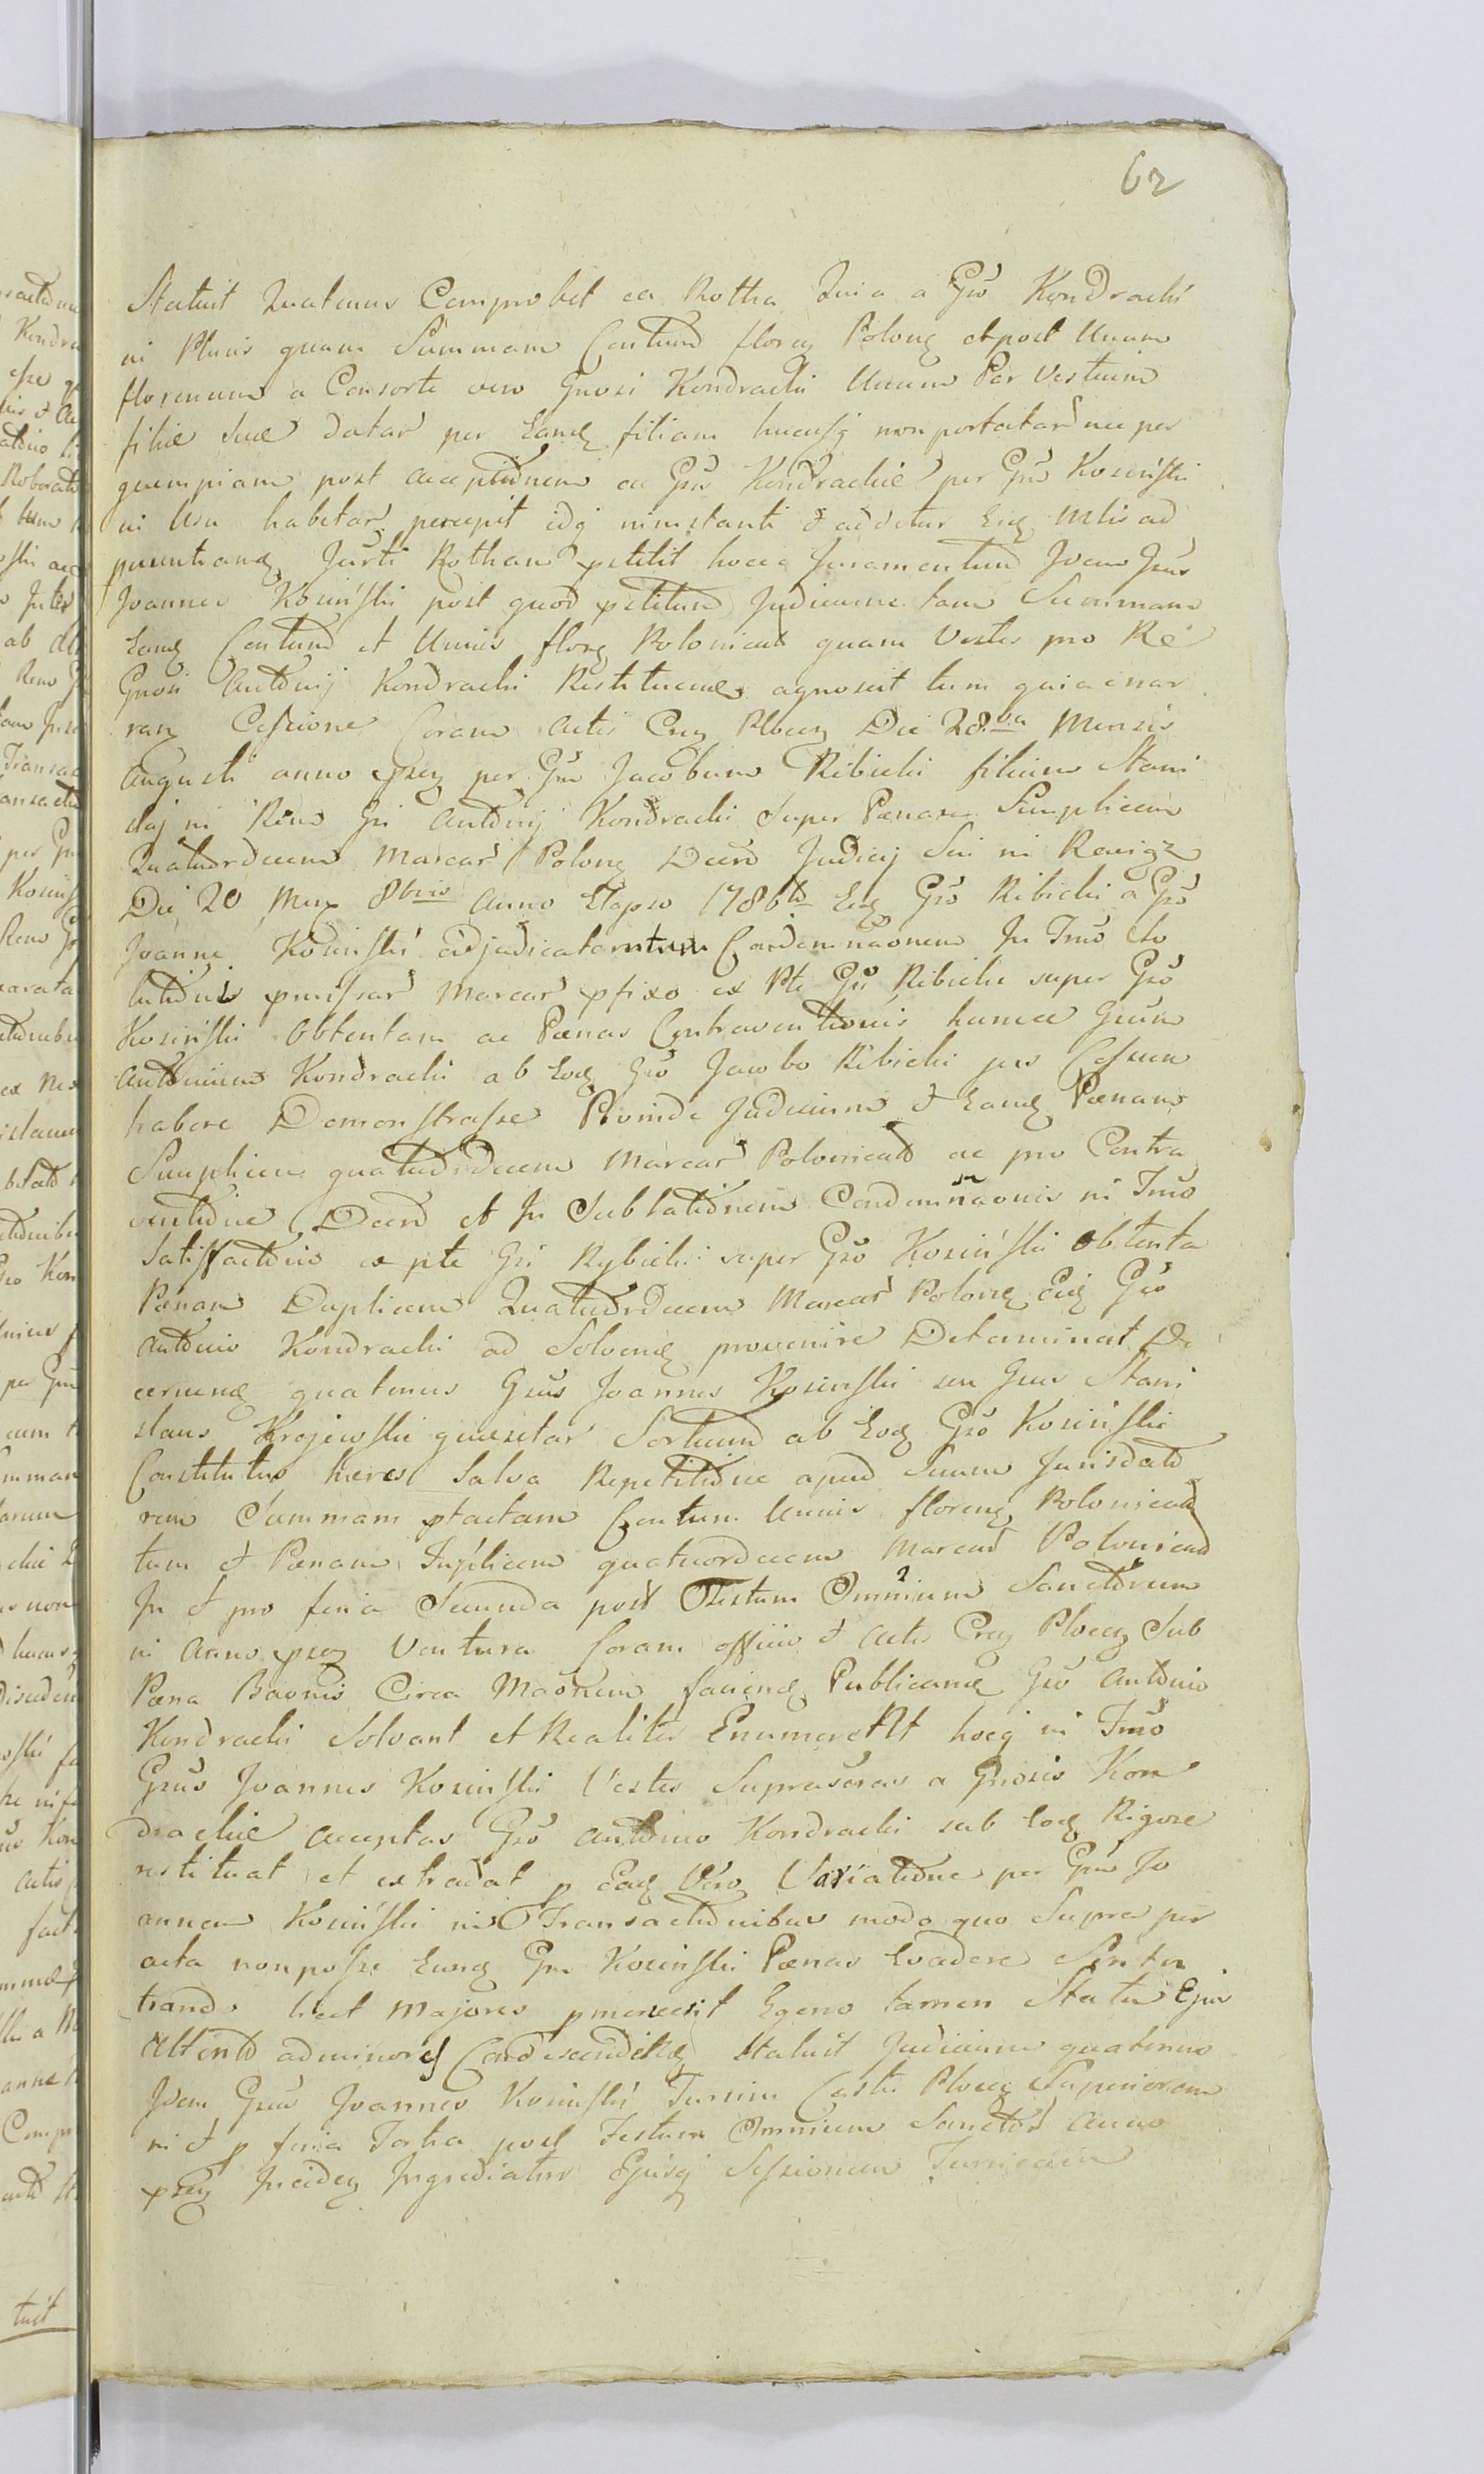 62
Statuit Quatenus Comprobet ea Rotha Quia a Gso Kondracki
ni Pluris quam Summam Centum floreg Poloneg et post Unum
florenum a Consorte vero Gnosi Kondracki Unum Par Vestium
filiæ suæ datar per Eandg filiam hucusq non portatar nec per
quempiam post acceptionem a Gsis Kondrackie per Gsm Kosinski
in Usu habitar percepit idq instanti et addetur Eidg Mtis ad
Jurti Rotham petitit hocce Juramentum Idem Gsus
Joannes Kosinski post quod petitum Judicium tam Summam
Eandg Centum et Unius floreg Polonicat quam Vestes pro Re
Gnosi Antonij Kondracki Restituend agnoscit tum quia enar
rag Cessione Coram Actis Creg Ploceg Die 28va Mensis
Augusti anno pseg per Gsm Jacobum Ribicki filium Stani
slaj in Rem Gsi Antonij Kondracki Super Pænam Simplicem
Quatuordecem Marcar Poloneg Decro Judicij Sui ni
Die 20 Mens 8bris Anno Elapso 1786to Eidg Gso Ribicki a Gso
Joanne Kosinski adjudicatam tum Condemnaonem In Tmo So
lutionis pmissar Marcar pfixo ex Pte Gsi Ribicki super Gso
Kosinski Obtentam ac Pænas Contraventionis hunce Gsum
Antonium Kondracki ab Eodg Gso Jacobo Ribicki jus Cessum
habere Demonstrasse Proinde Judicium et Eandg Pænam
Simplicem quatuordecem Marcar Polonicat ac pro Contra
ventione Decro et In Sublationem Condemnaonis ni Tmo
Satisfactionis ex pte Gsi Rybicki super Gso Kosinski Obtenta
Pænam Duplicem Quatuordecem Marcar Poloneg Eidg Gso
Antonio Kondracki ad Solvendg provenire Determinat De
cernendg quatenus Gsus Joannes Kosinski seu Gsus Stani
slaus Krajewski quæsitar Sortium ab Eodg Gso Kosinski
Constitutus hæres Salva Repetitione apud Suum Jurisdato
rem Summam ptactam Centum Unius floreneg Polonicat
tum et Pænam Triplicem quatuordecem Marcar Polonicat
In et pro feria Secunda post Festum Omnium Sanctorum
in Anno pseg Ventura Coram officio et Actis Creg Ploceg Sub
Pæna Baonis Circa Maonem faciendg Publicandg Gso Antonio
Kondracki Solvant et Realiter Enumerent Ut hocq in Tmo
Gsus Joannes Kosinski Vestes Suprascras a Gnosis Kon
drackie acceptas Gso Antonio Kondracki sub Eodg Rigore
restituat et extradat p Eadg Vero Variatione per Gsm Jo
annem Kosinski ni Transactionibus modo quo Supra per
acta non posse Eundg Gsm Kosinski Pænas Evadere Senten
tiando licet Majores pmeruerit Egeno tamen Statui Ejus
Attento ad minores Condescendendg Statuit Judicium quatenus
Idem Gsus Joannes Kosinski Turrim Castri Ploceg Superiorem
ni et p feria Tertia post Festum Omnium Sanctor Anno
pseg Incideg Ingrediatur Ejusq Sessionem Turricam